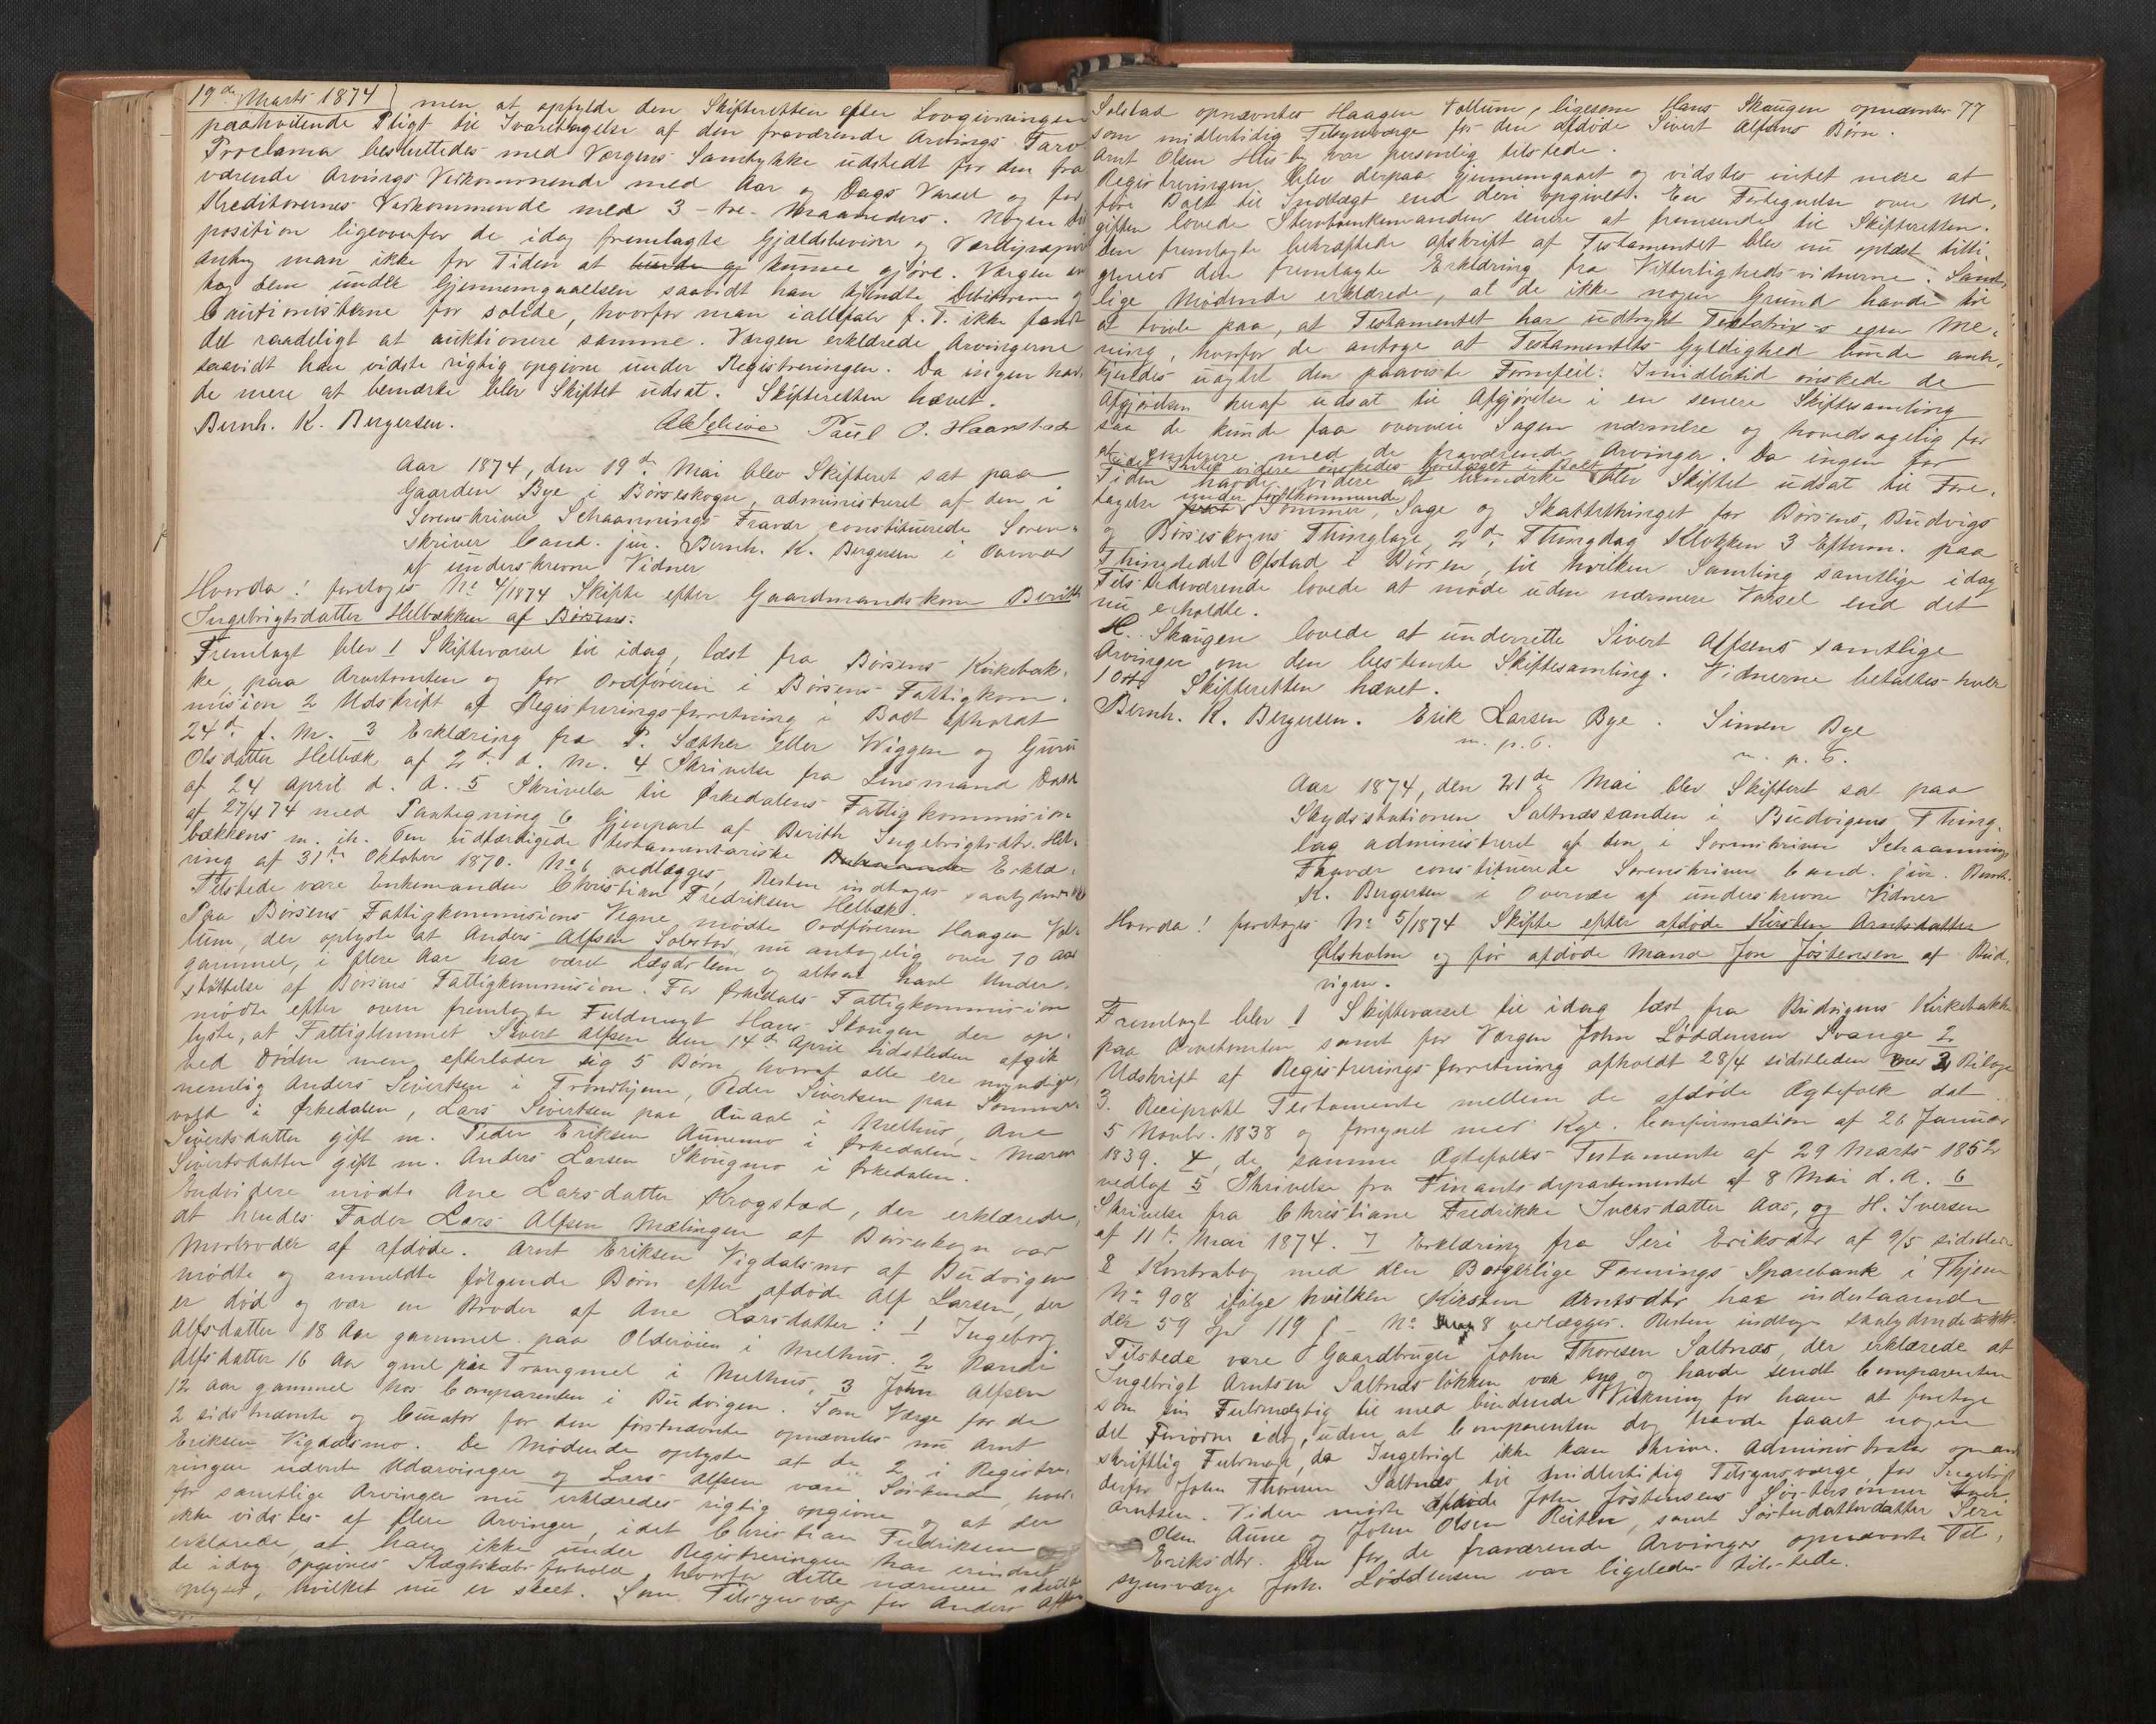 19de Marts 1874 men at opfylde den Skifteretten efter Lovgivningen
paahvilende Pligt til Ivaretagelse af den fraværende Arvings Tarv
Proclama besluttedes med Værgens Samtykke udstedt for den fra
værende Arvings Vedkommende med Aar og Dags Varsel og for
Kreditorernes Vedkommende med 3 - tre - Maaneders. Nogen Dis
position ligeoverfor de idag fremlagte Gjældsbeviser og Værdipapirer
antog man ikke for Tiden at burde gj kunne gjøre. Værgen an
tog dem under Gjennemgaaelsen saavidt han kjendte Debitorerne og
Cautionisterne for solide, hvorfor man ialtfald f. T. ikke fandt
det raadeligt at auktionere samme. Værgen erklærede Arvingerne
saavidt han vidste rigtig opgivne under Registreringen. Da ingen hav
de mere at bemærke blev Skiftet udsat. Skifteretten hævet.
Bernh. K. Bergersen. Paul O. Haarstad
Aar 1874, den 19de Mai blev Skifteret sat paa
Gaarden Bye i Børseskogn, administreret af den i
Sorenskriver Schaannings Fravær constituerede Soren-
skriver Cand. jur. Bernh. K. Bergersen i Overvær
af underskrevne Vidner
Hvorda! foretoges No 4/1874 Skifte efter Gaardmandskone Berith
Ingebrigtsdatter Helbækken af Børsen.
Fremlagt blev 1 Skiftevarsel til idag, læst fra Børsens Kirkebak-
ke, paa Arvetomten og for Ordføreren i Børsens Fattigkom-
mision 2 Udskrift af Registreringsforretning i Boet afholdt
24de f. M. 3 Erklæring fra P. Sæther eller Wiggen og Guru
Olsdatter Helbæk af 2de d. M. 4 Skrivelse fra Lensmand
af 24 April d. A. 5 Skrivelse til Ørkedalens Fattigkommision
af 27/4 74 med Paategning 6 Gjenpart af Berith Ingebrigtsdtr. Hel-
bækkens m. ih. Pen udfærdigede testamentariske Erklæ-
ring af 31te Oktober 1870. No 6 vedlægges, Resten indtages saalydende
Tilstede vare Enkemanden Christian Fredriksen Helbæk.
Paa Børsens Fattigkommisions Vegne mødte Ordføreren Haagen Vol-
lum, der oplyste at Anders Alfsen Solstad, nu antagelig over 70 Aar
gammel, i flere Aar har været Lægdslem og altsaa havt Under-
støttelse af Børsens Fattigkommision. For Ørkedals Fattigkommision
mødte efter oven fremlagte Fuldmagt Hans Skougen der op-
lyste, at Fattiglemmet Sivert Alfsen den 14de April sidstleden afgik
ved Døden men efterlader sig 5 Børn, hvoraf alle ere myndige,
nemlig Anders Sivertsen i Trondhjem, Peder Sivertsen paa Sommer-
vold i Ørkedalen, Lars Sivertsen paa Qvaal i Melhus, Ane
Sivertsdatter gift m. Peder Eriksen Aunemo i Ørkedalen - Maren
Sivertsdatter gift m. Anders Larsen Skougmo i Ørkedalen.
Endvidere mødte Ane Larsdatter Krogstad, der erklærede,
at hendes Fader Lars Alfsen Mælingen af Børseskogn var
Morbroder af afdøde. Arnt Eriksen Vigdalsmo af Budvigen
mødte og anmeldte følgende Børn efter afdøde Alf Larsen, der
er død og var en Broder af Ane Larsdatter: 1 Ingeborg
Alfsdatter 18 Aar gammel paa Olderøien i Melhus. 2 Randi
Alfsdatter 16 Aar gml paa Trangmel i Melhus, 3 John Alfsen
12 aar gammel hos Comparenten i Budvigen. Som Værge for de
2 sidstnævnte og Curator for den førstnævnte opnævntes nu Arnt
Eriksen Vigdalsmo. De Mødende oplyste at de 2 i Registre-
ringen nævnte Udarvinger og Lars Alfsen vare Søskende, hvor-
for samtlige Arvinger nu erklæredes rigtig opgivne og at der
ikke vidstes af flere Arvinger, idet Christian Fredriksen
erklærede, at han ikke under Registreringen har erindret
de idag opgivnes Slægtskabsforhold, hvorfor dette nærmere skulde
oplyses, hvilket nu er skeet. Som Tilsynsværge for Anders Alfsen
Solstad opnævntes Haagen Vollum, ligesom Hans Skaugen opnævntes 77
som midlertidig Tilsynsværge for den afdøde Sivert Alfsens Børn.
Arnt Olsen Husby var personlig tilstede.
Registreringen blev derpaa gjennemgaaet og vidstes intet mere at
føre Boet til Indtægt end deri opgivet. En Fortegnelse over Ud-
giften lovede Stervboenkemanden senere at fremsende til Skifteretten.
Den fremlagte bekræftede Afskrift af Testamentet blev nu oplæst tilli-
gemed den fremlagte Erklæring fra Vitterlighedsvidnerne. Samt-
lige Mødende erklærede, at de ikke nogen Grund havde til
at tvivle paa, at Testamentet har udtrykt Testatrix's egen Me-
ning, hvorfor de antoge at Testamentets Gyldighed burde aner-
kjendes uagtet den paaviste Formfeil. Imidlertid ønskede de
Afgjørelsen heraf udsat til Afgjørelse i en senere Skiftesamling
saa de kunde faa overveie Sagen nærmere og hovedsagelig for
at conferere med de fraværende Arvinger. Da ingen for
eidet Intet videre ønskedes foretaget i Boet
Tiden havde videre at bemærke blev Skiftet udsat til Fore-
tagelse under førstkommende Sommer, Sage og Skattethinget for Børsens, Budvigs
og Børseskogns Thinglag, 2de Thingdag Klokken 3 Efterm. paa
Thingstedet Ofstad i Børsen, til hvilken Samling samtlige idag
Tilstedeværende lovede at møde uden nærmere Varsel end det
nu erholdte.
H. Skaugen lovede at underrette Sivert Alfsens samtlige
Arvinger om den bestemte Skiftesamling. Vidnerne betaltes hver
1 Ort. Skifteretten hævet.
Bernh. K. Bergersen. Erik Larsen Bye. Simen Bye
m. p. P. m. p. P.
Aar 1874, den 21de Mai blev Skifteret sat paa
Skydsstationen Saltnæssanden i Budvigens Thing-
lag administreret af den i Sorenskriver Schaannings
Fravær constituerede Sorenskriver Cand. jur. Bernh.
K. Bergersen i Overvær af underskrevne Vidner
Hvorda! foretoges No 5/1874 Skifte efter afdøde Kirsten Arntsdatter
Ølsholm og før afdøde Mand Jon Jöstensen af Bud-
vigen.
Fremlagt blev 1 Skiftevarsel til idag læst fra Budvigens Kirkebakke
paa Arvetomten samt for Værgen John Löddensen Svange 2
Udskrift af Registreringsforretning afholdt 28/4 sidstleden med 2 Bilage
3. Reciprokt Testamente mellem de afdöde Ægtefolk dat.
5 Novbr. 1838 og forsynet med Kgl. Confirmation af 26 Januar
1839. 4, de samme Ægtefolks Testamente af 29 Marts 1852
vedlagt 5 Skrivelse fra Finantsdepartementet af 8 Mai d. A. 6
Skrivelse fra Christiane Fredrikke Iversdatter Aas, og H. Iversen
af 11te Mai 1874. 7 Erklæring fra Seri Eriksdtr af 9/5 sidstleden
8 Kontrabog med den Borgerlige Forenings Sparebank i Thjem
No 908 ifölge hvilken Kirsten Arntsdtr har indestaaende
der 59 Spd 119 ß - No 8 vedlægges. Resten indtages saalydende
Tilstede vare Gaardbruger John Thoresen Saltnæs, der erklærede at
Ingebrigt Arntsen Saltnæsløkken var syg og havde sendt Comparenten
som sin Fuldmægtig til med bindende Virkning for ham at foretage
det Fornødne idag, uden at Comparenten dog havde faaet nogen
skriftlig Fuldmagt, da Ingebrigt ikke kan skrive. Administrator opnævnte
derfor John Thoresen Saltnæs til midlertidig Tilsynsværge for Ingebrigt
Arntsen. Videre mødte Afdøde John Jöstensens Söstersønner
Olsen Aune og John Olsen Reiten, samt Søsterdatterdatter Seri
Eriksdtr. Den for de fraværende Arvinger opnævnte Til-
synsværge Joh. Löddensen var ligeledes tilstede.